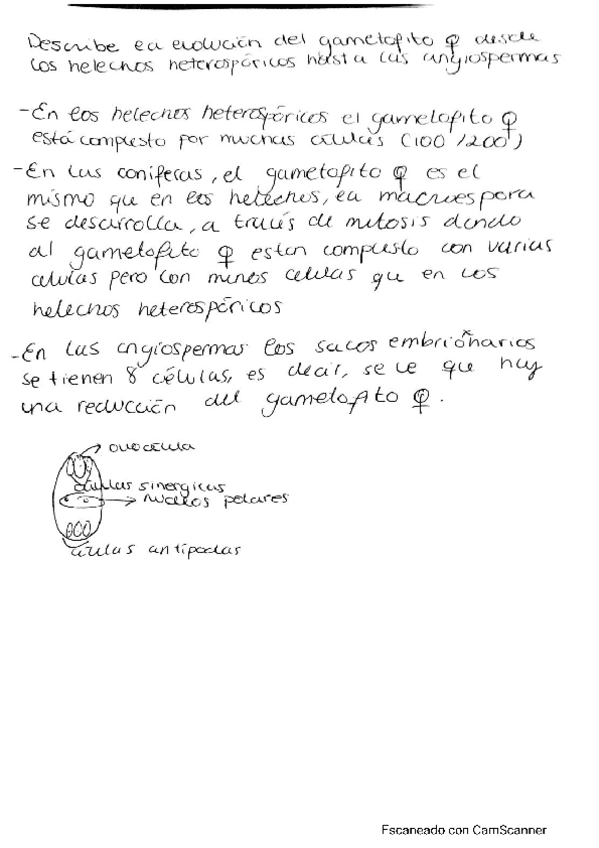 Describe la evolución del gametofito ♀ desde
los helechos heterospóricos hasta las angiospermas
- En los helechos heterospóricos el gametofito ♀
está compuesto por muchas células (100/200)
- En las coníferas, el gametofito ♀ es el
mismo que en los helechos, la macroespora
se desarrolla, a través de mitosis dando
al gametofito ♀ estan compuesto con varias
células pero con menos celulas que en los
helechos heterospóricos
- En las angiospermas los sacos embrionarios
se tienen 8 células, es decir, se ve que hay
una reducción del gametofito ♀.
ovocélula
células sinérgicas
núcleos polares
células antípodas
Escaneado con CamScanner